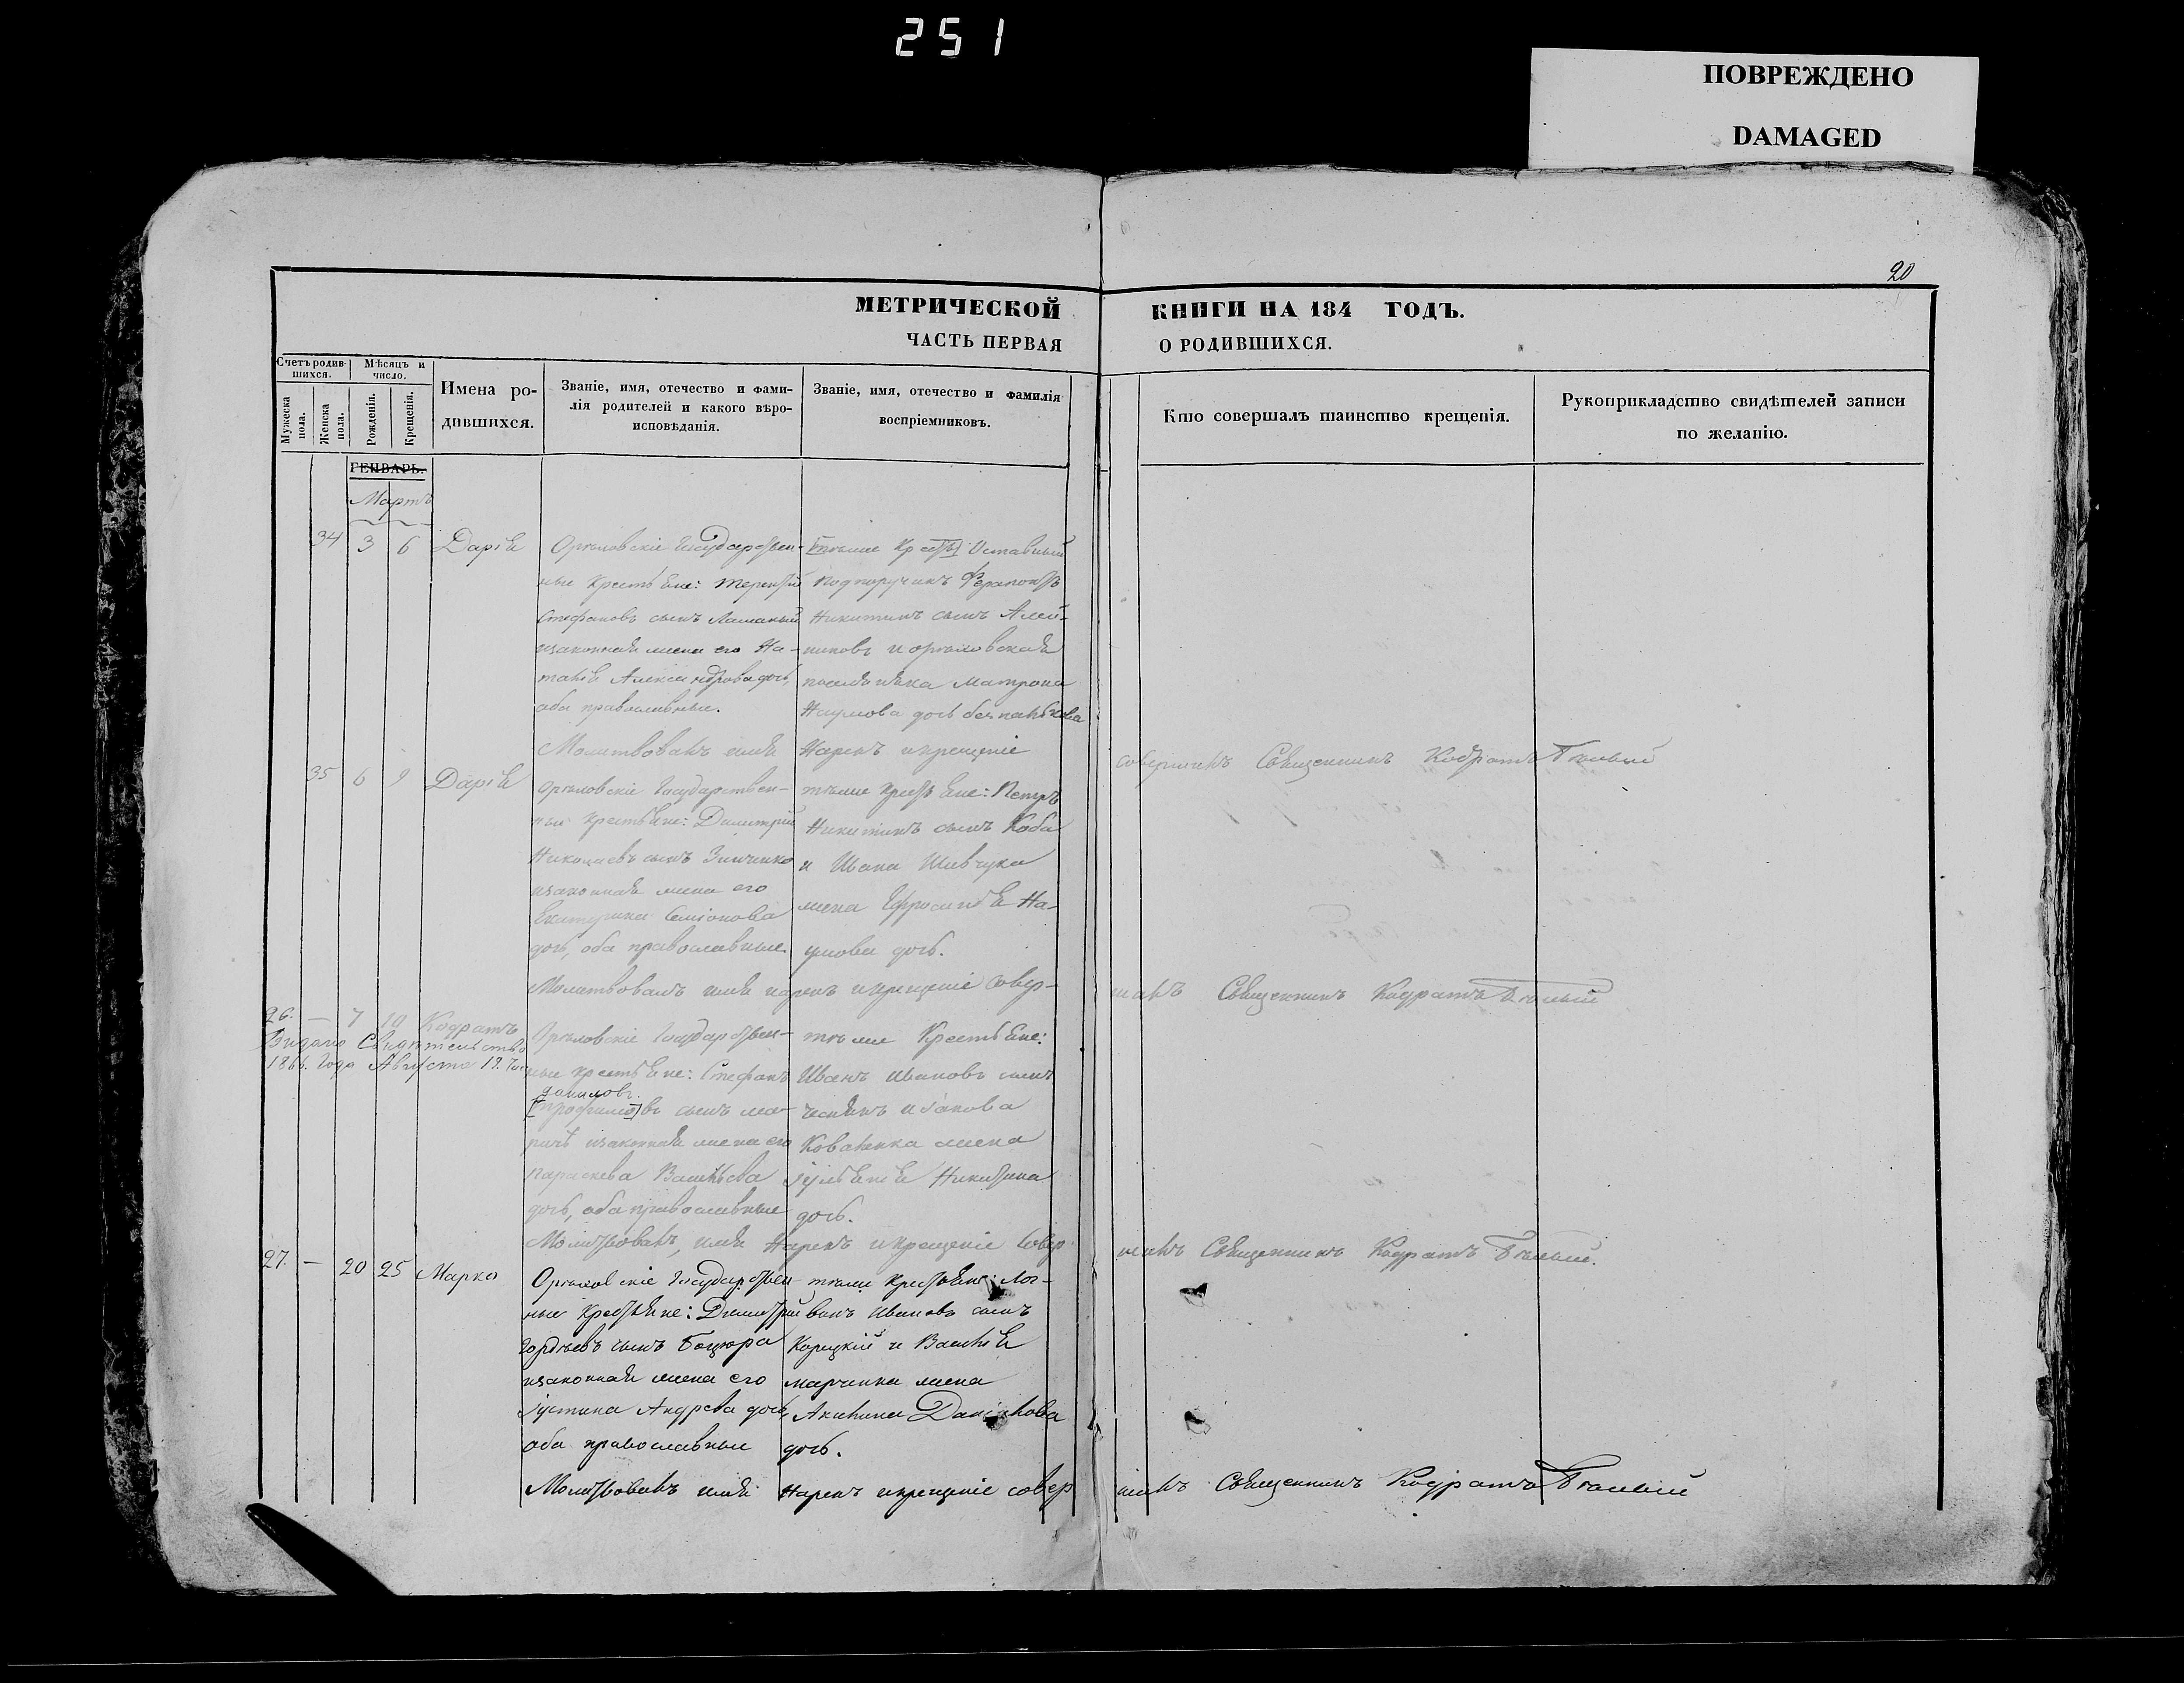 251
ПОВРЕЖДЕНО
DAMAGED
20
МЕТРИЧЕСКОЙ КНИГИ НА 184 ГОДЪ.
ЧАСТЬ ПЕРВАЯ О РОДИВШИХСЯ.
Счетъ родив-
шихся.
Мужеска
пола.
Женска
пола.
Мѣсяцъ и
число.
Рожденія.
Крещенія.
Имена ро-
дившихся.
Званіе, имя, отечество и фами-
лія родителей и какого вѣро-
исповѣданія.
Званіе, имя, отечество и фамилія
воспріемниковъ.
Кто совершалъ таинство крещенія.
Рукоприкладство свидѣтелей записи
по желанію.
ГЕНВАРЬ.
Мартъ
34 3 6 Дарія
Орѣловскіе Государствен-
ные крестьяне: Терентій
Стефановъ сынъ
изаконная жена его На-
талія Александрова дочь,
оба православные.
тѣмже Крестья Отставный
подпоручикъ Ферапонтъ
Никитинъ сынъ Алей-
никовъ и орѣловская
поселянка Матрона
Наумова дочь
Молитвовалъ имя Нарекъ икрещеніе
совершилъ Священникъ Кодратъ Бѣлый
35 6 9 Дарія
Орѣловскіе Государствен-
ные крестьяне: Димитрій
Николаевъ сынъ Зинченко
изаконная жена его
Екатерина Семіонова
дочь, оба православные.
тѣмже крестьяне: Петръ
Никитинъ сынъ Коба
и Ивана Шевчука
жена Ефросинія На-
умова дочь.
Молитвовалъ имя нарекъ икрещеніе совер-
шилъ Священникъ Кодратъ Бѣлый
26. — 7 10 Кодратъ
Видано Свидѣтельство
1866. Года Августа 19.
Орѣловскіе Государствен-
ные крестьяне: Стефанъ
Даниловъ
[Трофимо]въ сынъ
изаконная жена его
Параскева Васильева
дочь, оба православные
тѣмже Крестьяне:
Иванъ Ивановъ сынъ
и Іакова
Коваленка жена
Іуліянія Никитина
дочь.
Молитвовалъ, имя Нарекъ икрещеніе Совер-
шилъ Священникъ Кодратъ Бѣлый.
27. — 20 25 Марко
Орѣловскіе Государствен-
ные Крестьяне: Димитрій
Гордѣевъ сынъ Боцюра
изаконная жена его
Іустина Андреева дочь,
оба православные
тѣмже крестьяне: Лог-
винъ Ивановъ сынъ
Корицкій и Василія
Марченка жена
Акилина Даніилова
дочь.
Молитвовалъ имя Нарекъ икрещеніе совер
шилъ Священникъ Кодратъ Бѣлый